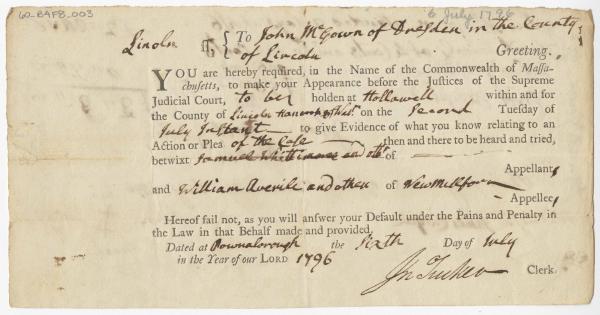 60-B4F8_003
6 July 1796
Lincoln ss. { To John McGown of Dresden in the County
of Lincoln Greeting.
YOU are hereby required, in the Name of the Commonwealth of Massa-
chusetts, to make your Appearance before the Justices of the Supreme
Judicial Court, to be holden at Hallowell within and for
the County of Lincoln on the Second Tuesday of
July Instant to give Evidence of what you know relating to an
Action or Plea of the Case then and there to be heard and tried,
betwixt Samuel Whittimore and oths of
Appellant,
and William Averile and others of Newmilford
Appellee,
Hereof fail not, as you will answer your Default under the Pains and Penalty in
the Law in that Behalf made and provided.
Dated at Pownalborough the Sixth Day of July
in the Year of our LORD 1796
Jn Tucker Clerk.